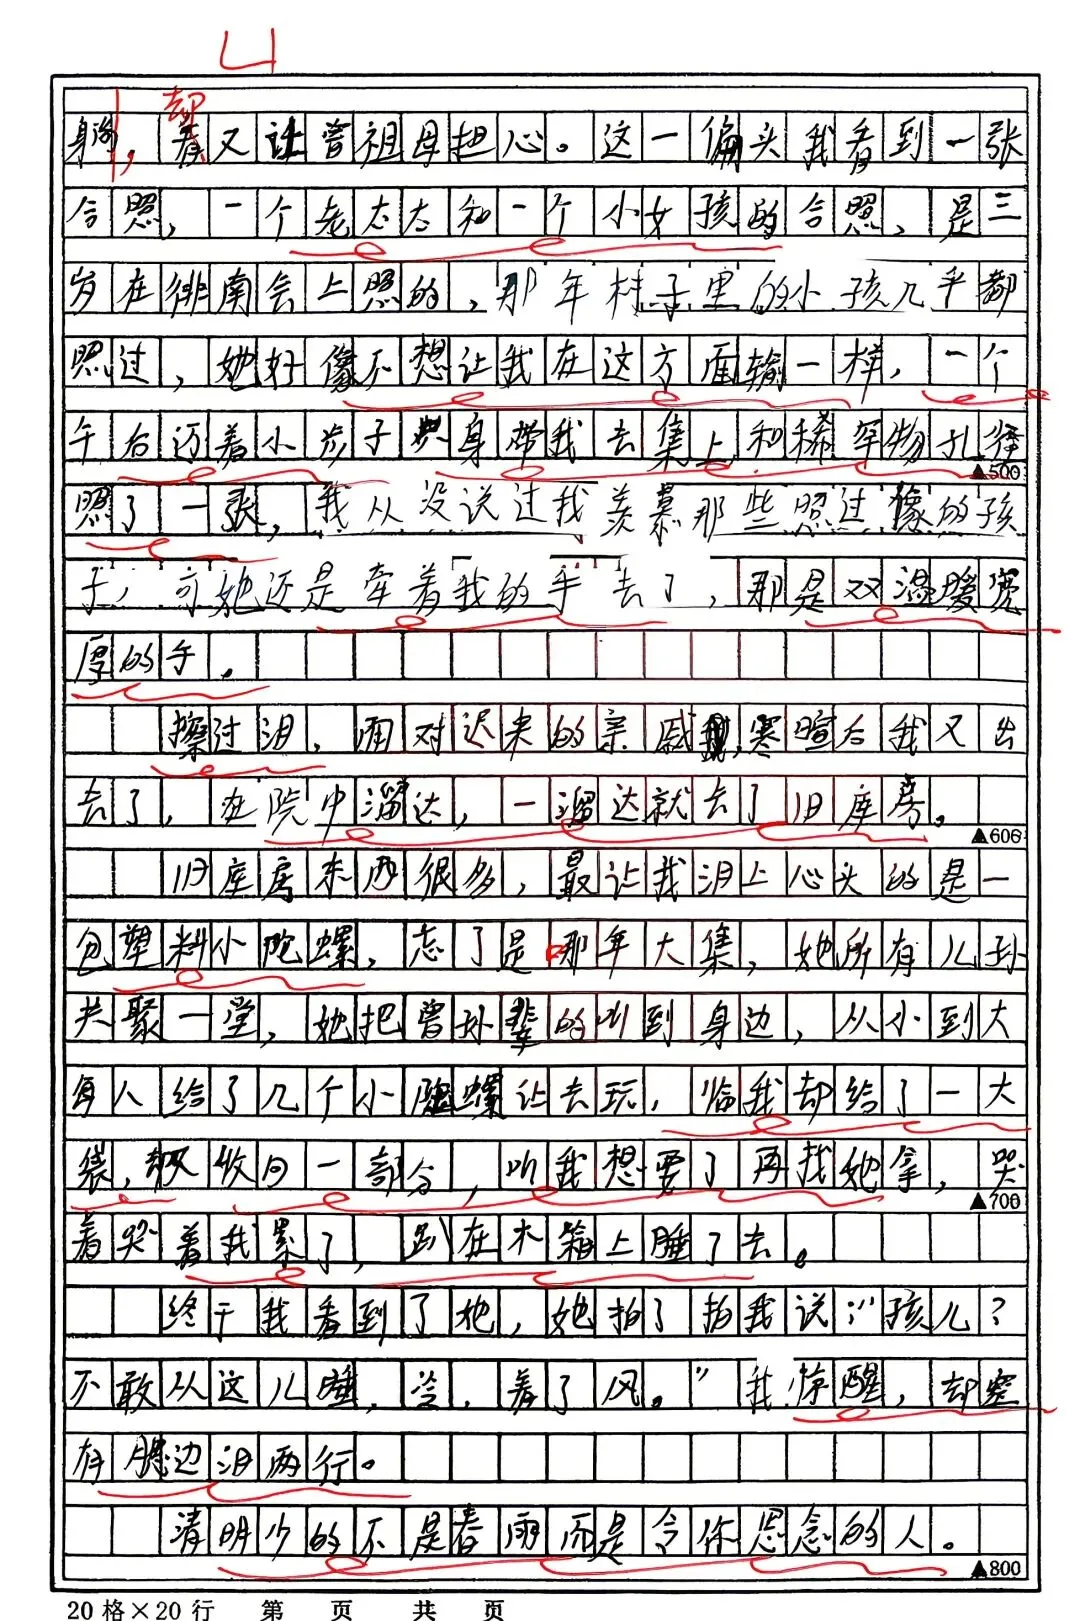 却
身边，着又让曾祖母担心。这一偏头我看到一张
合照，一个老太太和一个小女孩的合照，是三
岁在徘南会上照的，那年村子里的小孩几乎都
照过，她好像不想让我在这方面输一样，一个
午后迈着小步子只身带我去集上和稀罕物孔雀
照了一张，我从没说过我羡慕那些照过像的孩
子，可她还是牵着我的手去了，那是双温暖宽
厚的手。
擦过泪，面对迟来的亲戚，寒暄后我又出
去了，在院中溜达，一溜达就去了旧库房。
▲600
旧库房东西很多，最让我泪上心头的是一
包塑料小陀螺，忘了是哪年大集，她所有儿孙
共聚一堂，她把曾孙辈的叫到身边，从小到大
每人给了几个小陀螺让去玩，临我却给了一大
袋，却又收回一部分，叫我想要了再找她拿，哭
▲500
▲700
着哭着我累了，趴在木箱上睡了去。
终于我看到了她，她拍了拍我说："孩儿？
不敢从这儿睡，冷，着了风。"我惊醒，却空
有腮边泪两行。
清明少的不是春雨而是令你思念的人。
▲800
20格×20行 第 页 共 页